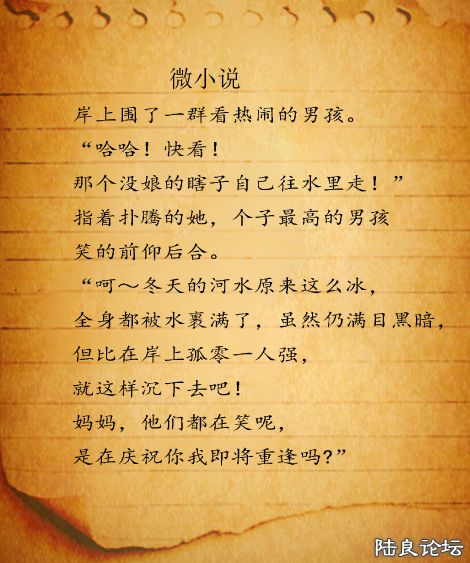 微小说
岸上围了一群看热闹的男孩。
“哈哈！快看！
那个没娘的瞎子自己往水里走！”
指着扑腾的她，个子最高的男孩
笑的前仰后合。
“呵～冬天的河水原来这么冰，
全身都被水裹满了，虽然仍满目黑暗，
但比在岸上孤零一人强，
就这样沉下去吧！
妈妈，他们都在笑呢，
是在庆祝你我即将重逢吗?”
陆良论坛